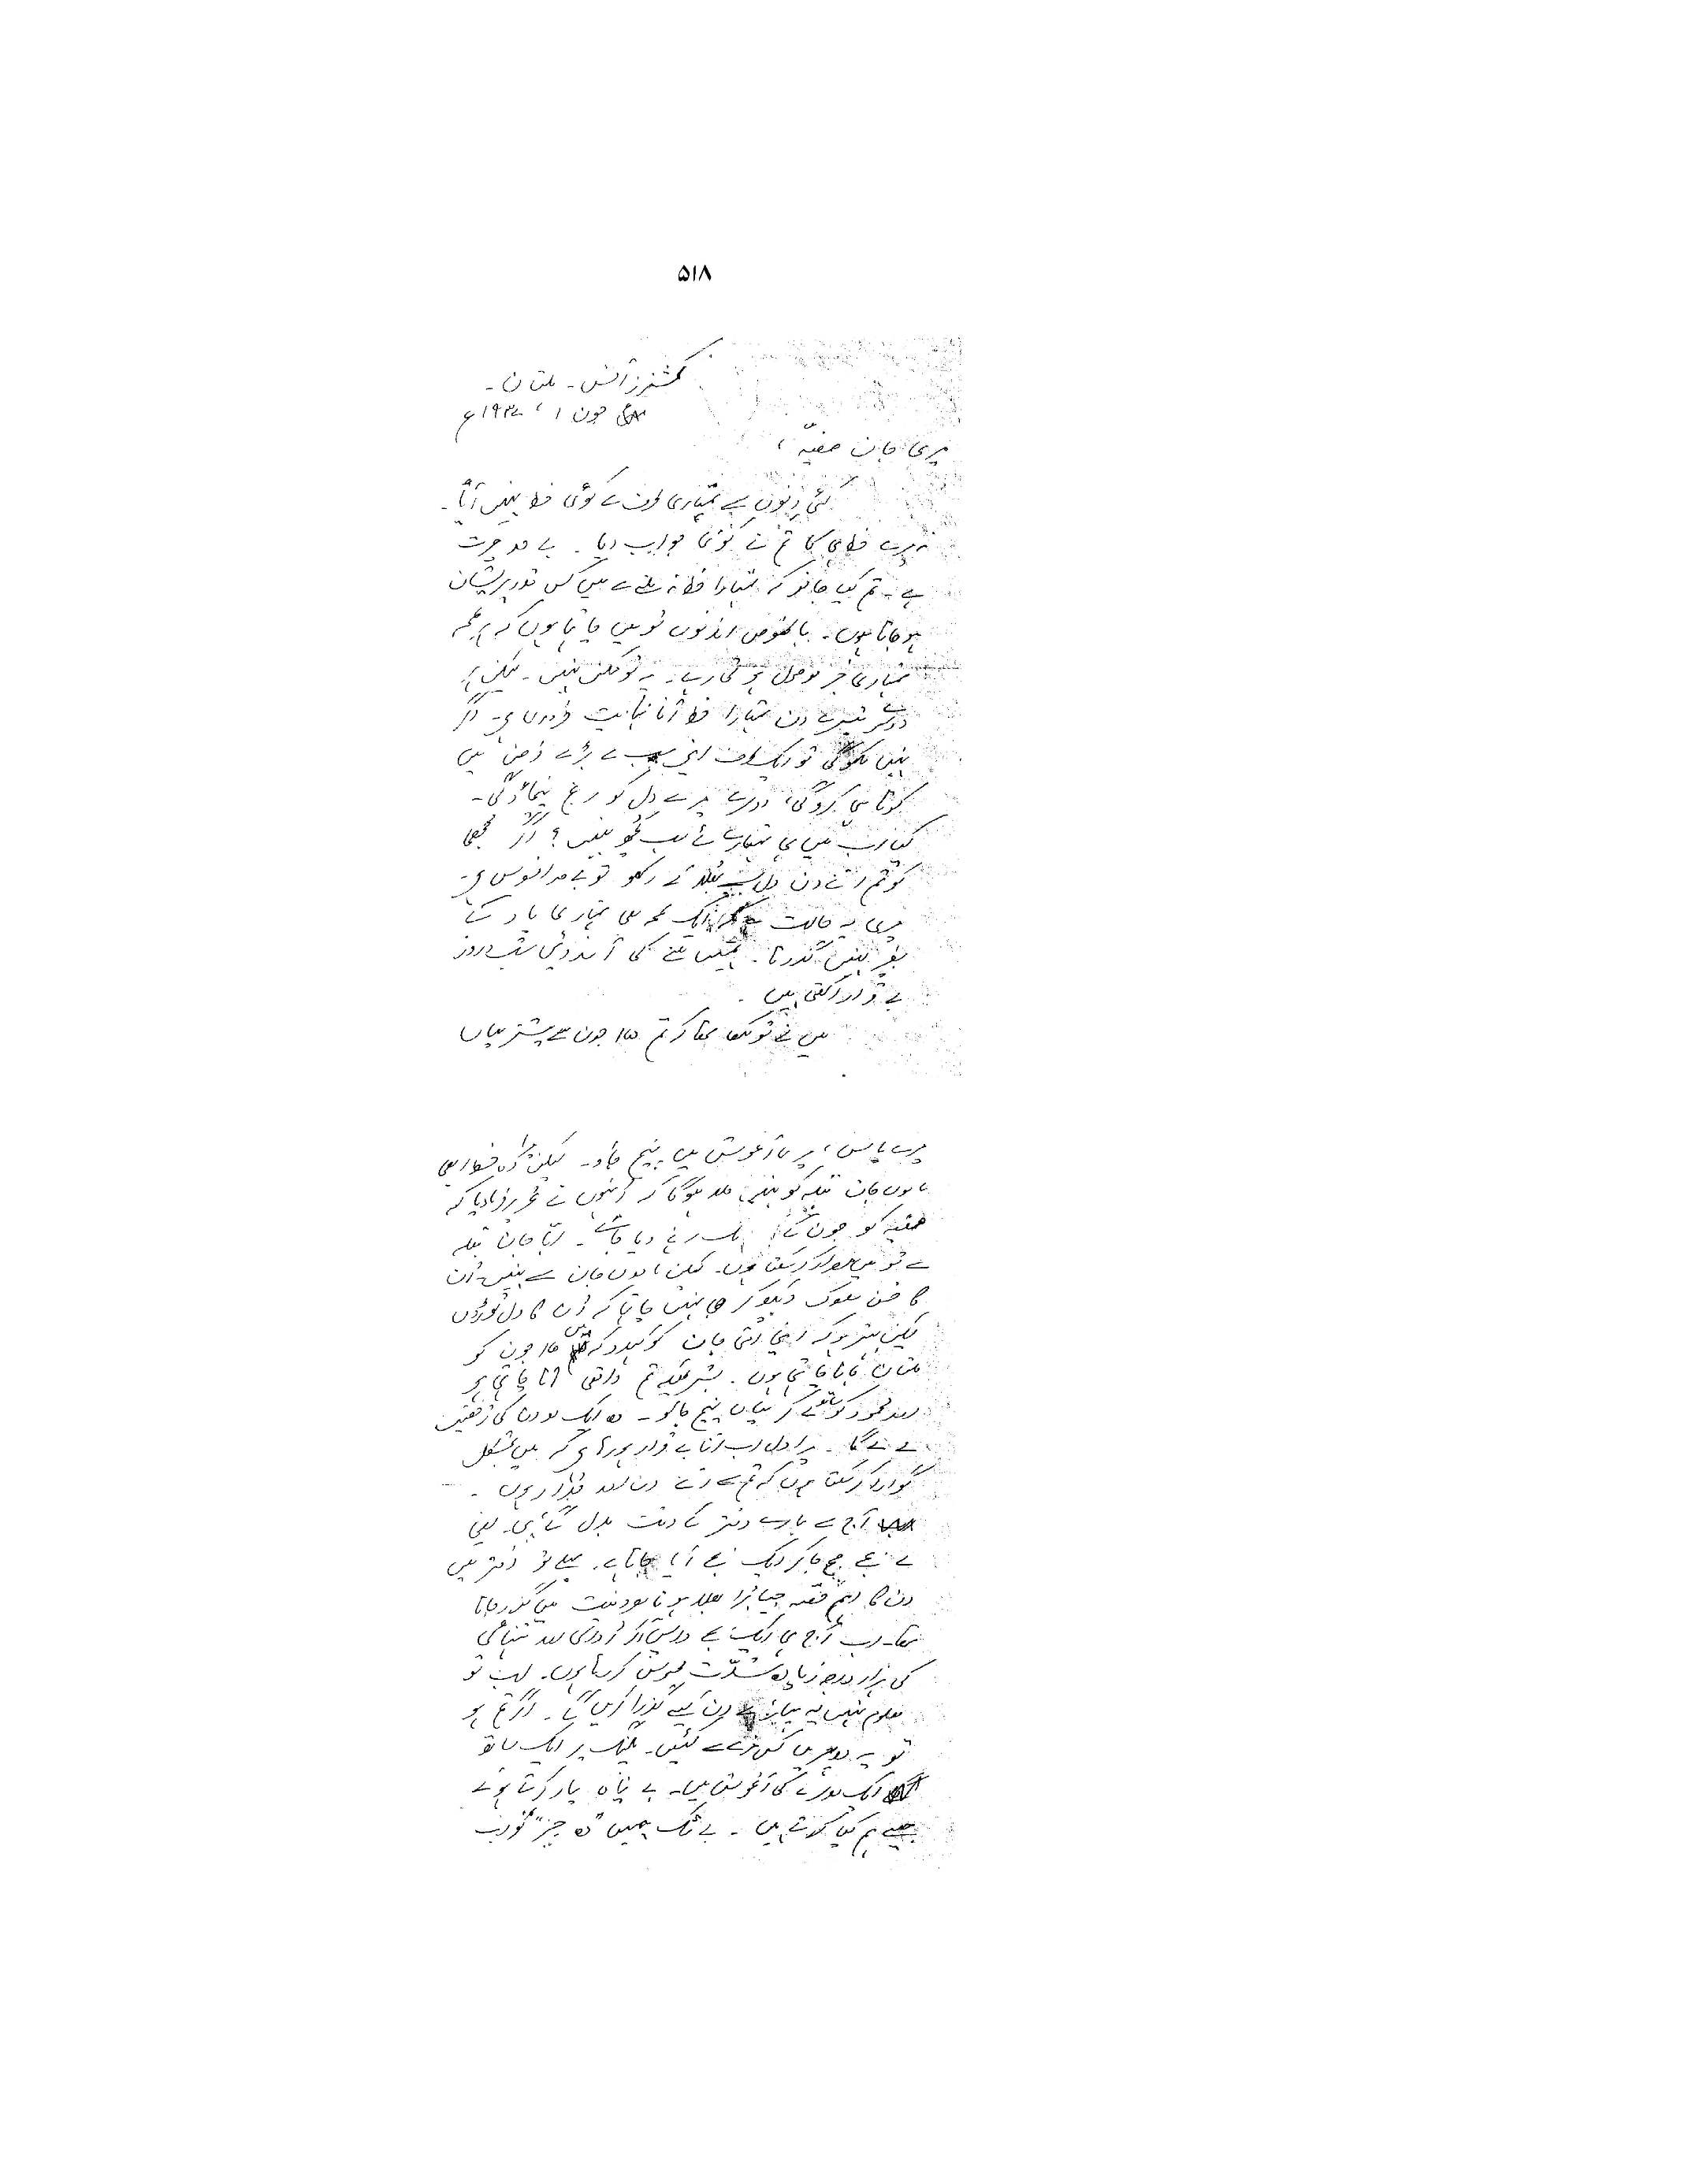 ۵۱۸
کمشنرز آفس۔ ملتان۔
جون ۱، ۱۹۳۷ء
میری جان صفیہ،
کئی دنوں سے تمہاری طرف سے کوئی خط نہیں آیا۔
نہ میرے خط ہی کا تم نے کوئی جواب دیا۔ بے حد حیرت
ہے۔ تم کیا جانو کہ تمہارا خط نہ ملنے سے میں کس قدر پریشان
ہو جاتا ہوں۔ بالخصوص ان دنوں تو میں چاہتا ہوں کہ ہر لمحہ
تمہاری خبر موصول ہوتی رہے۔ یہ تو ممکن نہیں۔ لیکن ہر
دوسرے تیسرے دن تمہارا خط آنا نہایت ضروری ہے۔ اگر
نہیں لکھو گی تو ایک طرف اپنے سب سے بڑے فرض میں
کوتاہی کرو گی، دوسرے میرے دل کو رنج پہنچاؤ گی۔
کیا اب میں ہی تمہارے لئے سب کچھ نہیں؟ اگر مجھی
کو تم اتنے دن دل سے بھلائے رکھو تو بے حد افسوس ہے۔
میری یہ حالت ہے کہ ایک لمحہ بھی تمہاری یاد کے
بغیر نہیں گذرتا۔ تمہیں ملنے کی آرزوئیں شب و روز
بے قرار رکھتی ہیں۔
میں نے تو لکھا تھا کہ تم ۱۵ جون سے پیشتر یہاں
میرے پاس، میری آغوش میں پہنچ جاؤ۔ لیکن میرا وہ خط ابھی
ماموں جان قبلہ کو نہیں ملا ہو گا کہ انہوں نے تحریر فرما دیا کہ
صفیہ کو جون کے تک رہنے دیا جائے۔ ابا جان قبلہ
سے تو میں اصرار کر سکتا ہوں۔ لیکن ماموں جان سے نہیں۔ ان
کا حسن سلوک دیکھ کر جی نہیں چاہتا کہ ان کا دل توڑوں
لیکن بہتر ہو کہ اپنی امی جان کو کہہ دو کہ میں ۱۵ جون کو
ملتان جانا چاہتی ہوں۔ بشرطیکہ تم واقعی آنا چاہتی ہو
اور محمود کو ساتھ لے کر یہاں پہنچ جاؤ۔ وہ ایک دو دن کی رخصت
لے لے گا۔ میرا دل اب اتنا بے قرار ہو رہا ہے کہ میں بمشکل
گوارا کر سکتا ہوں کہ تم سے اتنے دن اور جدا رہوں۔
آج سے ہمارے دفتر کے وقت بدل گئے ہیں۔ یعنی
۷ بجے صبح جا کر ایک بجے آیا جاتا ہے۔ پہلے تو دفتر میں
دن کا اہم حصہ جیسا برا بھلا ہوتا مصروفیت میں گذر جاتا
تھا۔ اب آج ہی ایک بجے واپس آ کر اداسی اور تنہائی
کی ہزار درجہ زیادہ شدت محسوس کر رہا ہوں۔ اب تو
معلوم نہیں یہ پہاڑ سے دن کیسے گذرا کریں گے۔ اگر تم ہو
تو یہ دوپہریں کس مزے سے کٹیں۔ پلنگ پر ایک ساتھ
ایک دوسرے کی آغوش میں۔ بے پناہ پیار کرتے ہوئے
جیسے ہم کیا کرتے ہیں۔ بے شک ہمیں وہ چیز